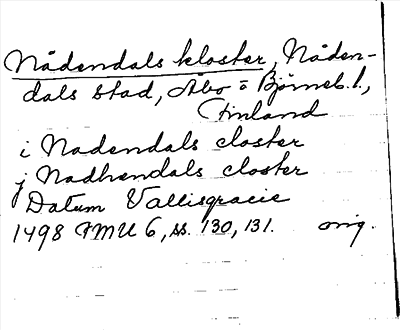 Nådendals kloster, Nåden-
dals stad, Åbo o Björneb. l.,
Finland
i Nadendals closter
j Nadhendals closter
Datum Vallisgracie
1498 FMU 6, ss. 130, 131. orig.